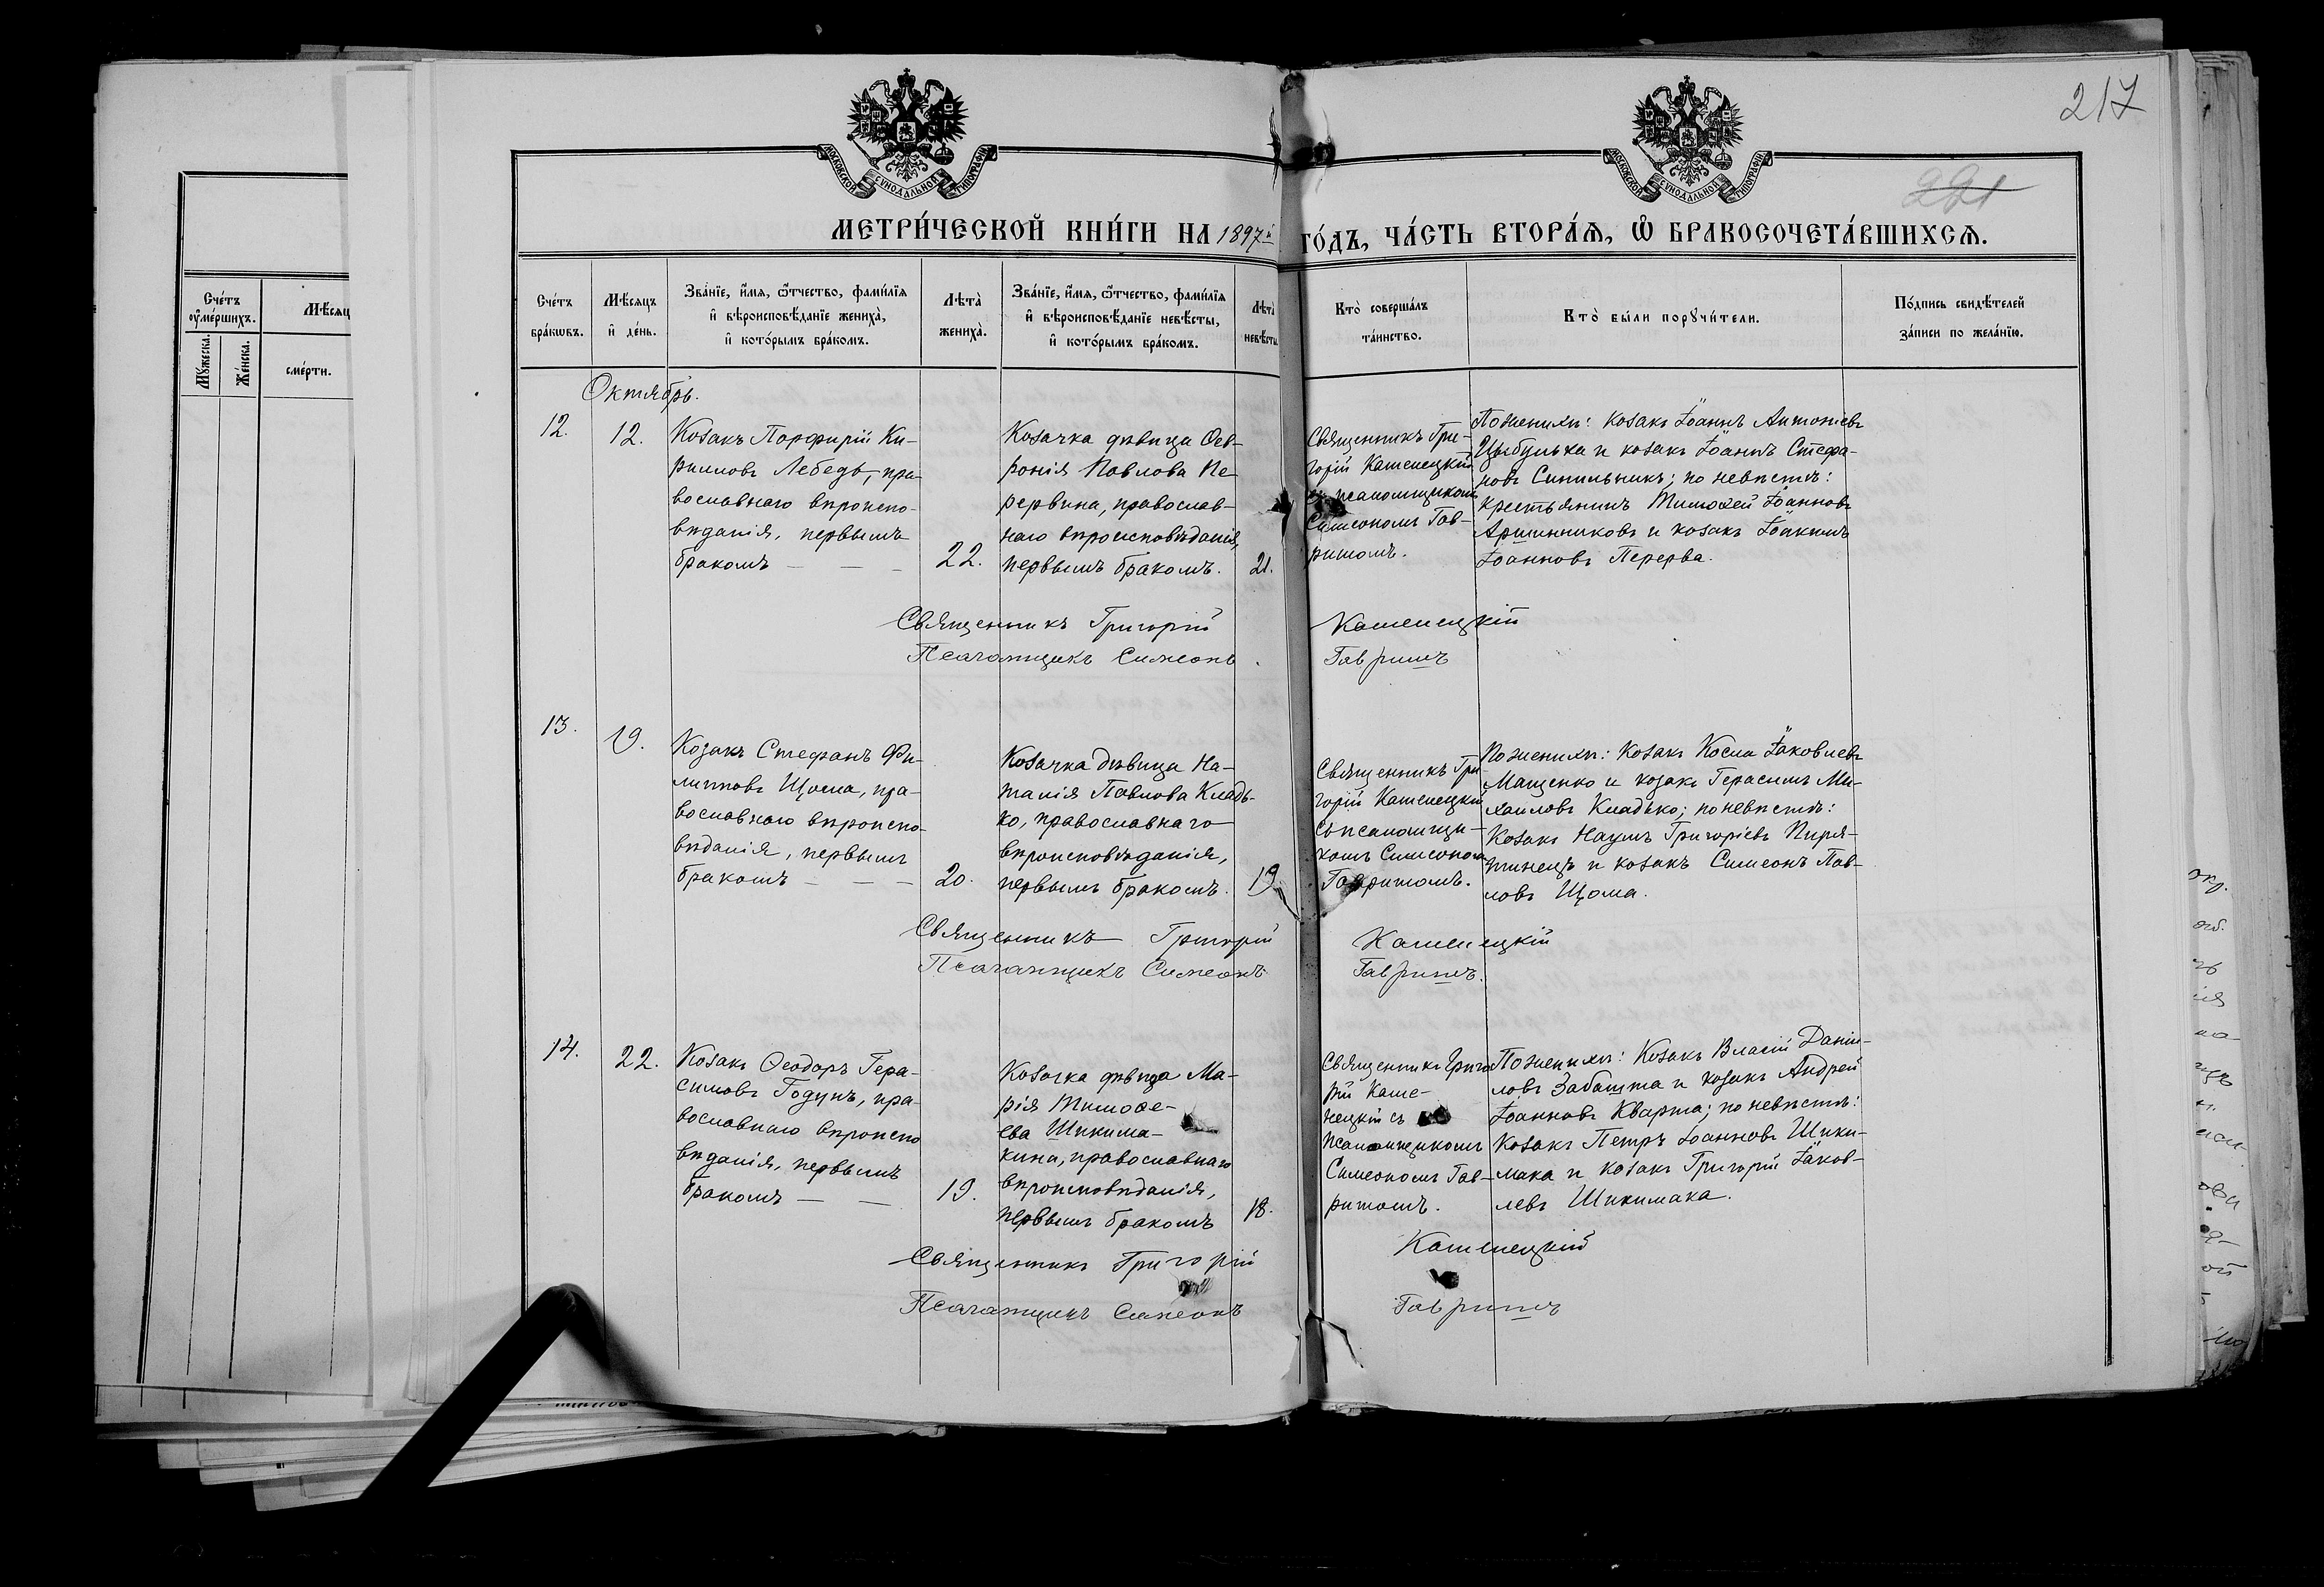 217
221
МОСКОВСКОЙ СѴНОДАЛЬНОЙ ТИПОГРАФІИ
МОСКОВСКОЙ СѴНОДАЛЬНОЙ ТИПОГРАФІИ
МЕТРИ́ЧЕСКОЙ КНИ́ГИ НА 1897й ГО́ДЪ, ЧА́СТЬ ВТОРА́Ѧ, Ѽ БРАКОСОЧЕТА́ВШИХСѦ.
Сче́тъ
оу҆ме́ршихъ.
Мѣ́сѧц
Мꙋ́жеска.
Же́нска.
сме́рти.
Сче́тъ
бра́кѡвъ.
Мѣ́сѧцъ
и҆ де́нь.
Зва́нїе, и҆́мѧ, ѻ҆́тчество, фами́лїѧ
и҆ вѣроисповѣ́данїе жениха̀,
и҆ кото́рымъ бра́комъ.
Лѣ́та̀
жениха̀.
Зва́нїе, и҆́мѧ, ѻ҆́тчество, фами́лїѧ
и҆ вѣроисповѣ́данїе невѣ́сты,
и҆ кото́рымъ бра́комъ.
Лѣ́та̀
невѣ́сты
Кто̀ соверша́лъ
та́инство.
Кто̀ бы́ли порꙋчи́тели.
По́дпись свидѣ́телей
за́писи по жела́нїю.
Октябрь.
12.
12.
Козакъ Порфирій Ки-
рилловъ Лебедь, пра-
вославнаго вѣроиспо-
вѣданія, первымъ
бракомъ — — —
22.
Козачка дѣвица Фев-
ронія Павлова Пе-
рервина, православ-
наго вѣроисповѣданія,
первымъ бракомъ.
21.
Священникъ Гри-
горій Каменецкій
съ псаломщикомъ
Симеономъ Гав-
ришомъ.
По женихѣ: козакъ Іоаннъ Антоніевъ
Цыбулька и козакъ Іоаннъ Стефа-
новъ Синильникъ; по невѣстѣ:
крестьянинъ Тимоѳей Іоанновъ
Аршинниковъ и козакъ Іоакимъ
Іоанновъ Перерва.
Священникъ Григорій Каменецкій
Псаломщикъ Симеонъ Гавришъ
13.
19.
Козакъ Стефанъ Фи-
липповъ Щома, пра-
вославнаго вѣроиспо-
вѣданія, первымъ
бракомъ — — —
20.
Козачка дѣвица На-
талія Павлова Кладь-
ко, православнаго
вѣроисповѣданія,
первымъ бракомъ.
19.
Священникъ Гри-
горій Каменецкій
съ псаломщи-
комъ Симеономъ
Гавришомъ.
По женихѣ: козакъ Косма Іаковлевъ
Мащенко и козакъ Герасимъ Ми-
хаиловъ Кладько; по невѣстѣ:
козакъ Наумъ Григоріевъ Пиря-
тинецъ и козакъ Симеонъ Пав-
ловъ Щома.
Священникъ Григорій Каменецкій
Псаломщикъ Симеонъ Гавришъ.
14.
22.
Козакъ Ѳеодоръ Гера-
симовъ Годунъ, пра-
вославнаго вѣроиспо
вѣданія, первымъ
бракомъ — —
19.
Козачка дѣвица Ма-
рія Тимоѳе-
ева Шикима-
кина, православнаго
вѣроисповѣданія,
первымъ бракомъ
18.
Священникъ Григо
рій Каме-
нецкій съ
псаломщикомъ
Симеономъ Гав-
ришомъ.
По женихѣ: козакъ Власій Даніи-
ловъ Забашта и козакъ Андрей
Іоанновъ Кварта; по невѣстѣ:
козакъ Петръ Іоанновъ Шики-
мака и козакъ Григорій Іаков-
левъ Шикимака.
Священникъ Григорій Каменецкій
Псаломщикъ Симеонъ Гавришъ